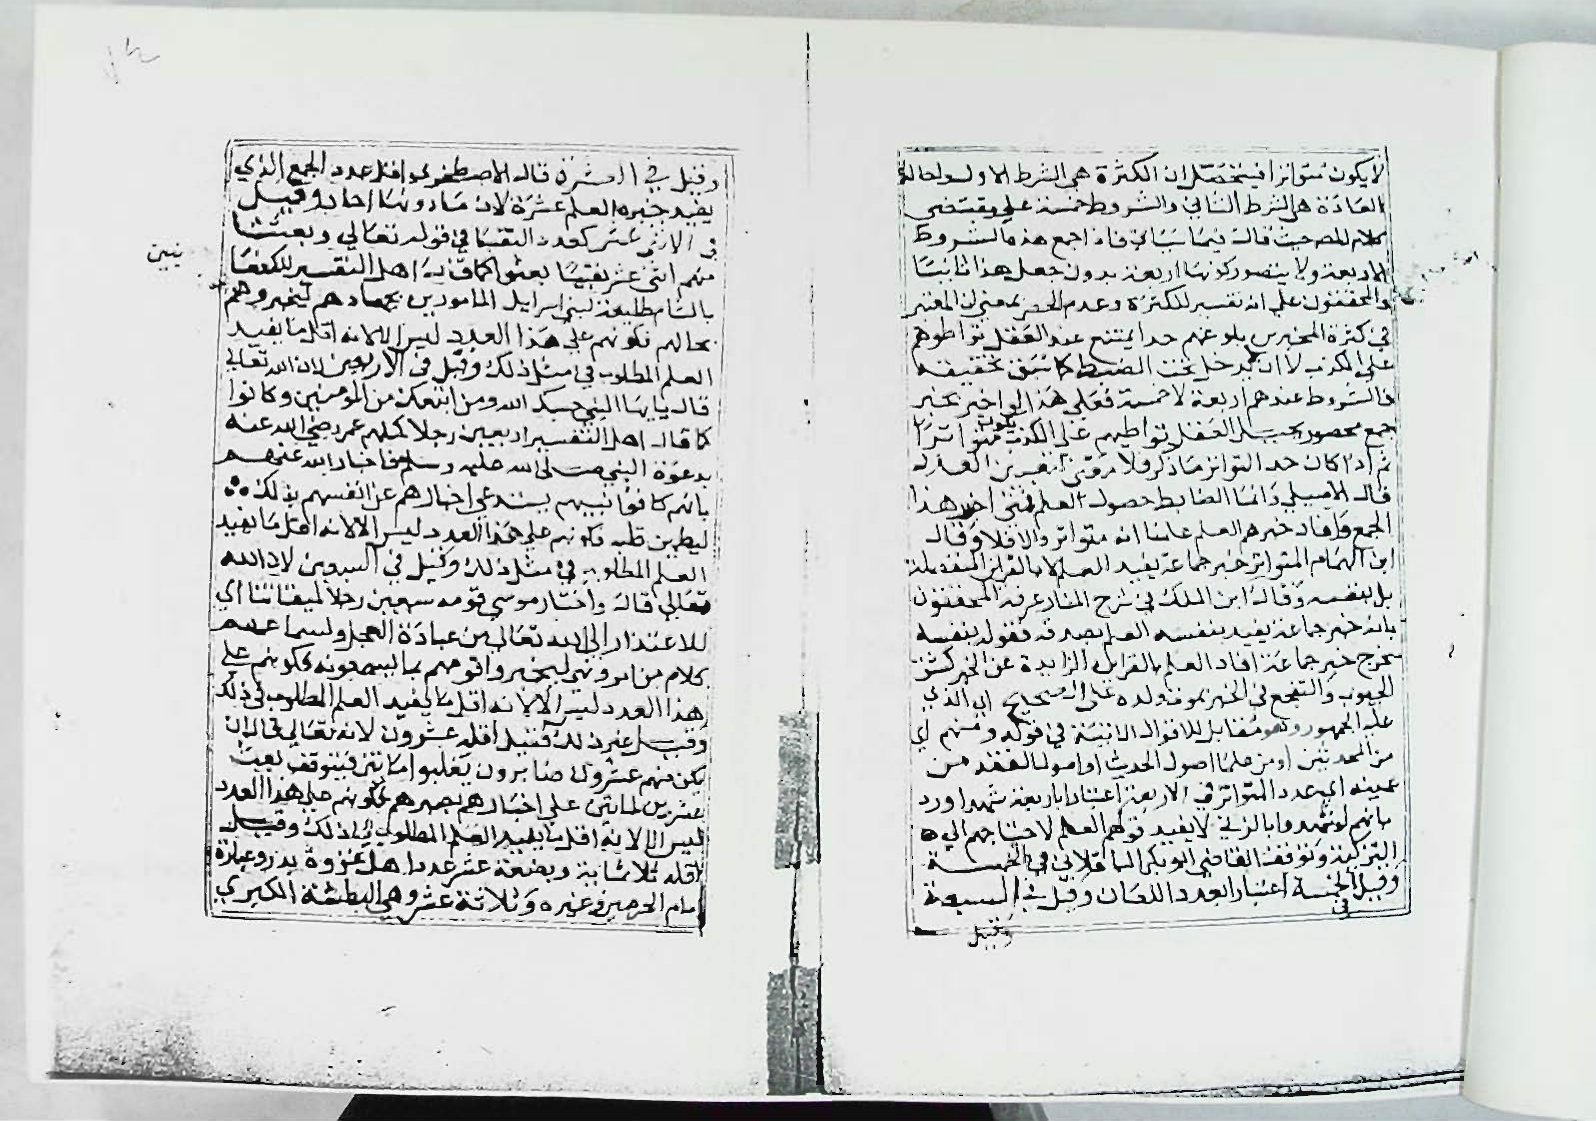 لا يكون متواترا فيتحصل ان الكثرة هي الشرط الاول واحالة
العادة هي الشرط الثاني والشروط خمسة على مقتضى
كلام المص حيث قال فيما سياتي فاذا جمع هذه الشروط
الاربعة ولا يتصور كونها اربعة بدون جعل هذا ثانيا
والمحققون على انه تفسير للكثرة وعدم الحصر بمعنى ان المعتبر
في كثرة المخبرين بلوغهم حدا يمتنع عند العقل تواطوهم
على الكذب لا ان يدخل تحت الضبط كما سبق تحقيقه
فالشروط عندهم اربعة لا خمسة فعلى هذا لو اخبر بخبر
جمع محصور يحيل العقل تواطيهم على الكذب يكون متواترا
ثم اذا كان حد التواتر ما ذكر فلا
قال وانما الضابط حصول العلم فمتى اخبر هذا
الجمع وافاد خبرهم العلم علمنا انه متواتر والا فلا وقال
ابن الهمام المتواتر خبر جماعة يفيد العلم لا بالقراين المنفصلة
بل بنفسه وقال ابن الملك في شرح المنار عرفه المحققون
بانه خبر جماعة يفيد بنفسه العلم بصدقه فقوله بنفسه
يخرج خبر جماعة افاد العلم بالقراين الزايدة عن الخبر كشق
الجيوب والتفجع في الخبر بموت ولده على الصحيح اي الذي
عليه الجمهور وهو مقابل للاقوال الاتية في قوله ومنهم اي
من المحدثين او من علما اصول الحديث او اصول الفقه من
عينه اي عدد المتواتر في الاربعة اعتبارا باربعة شهدا ورد
بانهم لو شهدوا بالزنى لا يفيد قولهم العلم لاحتياجهم الى
التزكية وتوقف القاضي ابو بكر الباقلاني في الخمسة
وقيل في الخمسة اعتبارا بعدد اللعان وقيل في السبعة
وقيل
وقيل في العشرة قاله الاصطخري واقل عدد الجمع الذي
يفيد خبره العلم عشرة لان ما دونها احاد وقيل
في الاثنى عشر كعدد النقبا في قوله تعالى وبعثنا
منهم اثنى عشر نقيبا بعثوا كما قاله اهل التفسير للكنعا
نيين
بالشام طليعة لبني اسرايل المامورين بجهادهم ليخبروهم
بحالهم فكونهم على هذا العدد ليس الا لانه اقل ما يفيد
العلم المطلوب في مثل ذلك وقيل في الاربعين لان الله تعالى
قال يايها النبي حسبك الله ومن اتبعك من المومنين وكانوا
كما قال اهل التفسير اربعين رجلا كملهم عمر رضي الله عنه
بدعوة النبي صلى الله عليه وسلم فاخبار الله عنهم
بانهم كافوا نبيهم يستدعي اخبارهم عن انفسهم بذلك
ليطمين قلبه فكونهم على هذا العدد ليس الا لانه اقل ما يفيد
العلم المطلوب في مثل ذلك وقيل في السبعين لان الله
تعالى قال واختار موسى قومه سبعين رجلا لميقاتنا اي
للاعتذار الى الله تعالى من عبادة العجل ولسماعهم
كلام من امر ونهي ليخبروا قومهم بما يسمعونه فكونهم على
هذا العدد ليس الا لانه اقل ما يفيد العلم المطلوب في ذلك
وقيل غير ذلك فقيل اقله عشرون لانه تعالى قال ان
يكن منكم عشرون صابرون يغلبوا مائتين فيتوقف بعث
عشرين لمايتين على اخبارهم بصبرهم فكونهم على هذا العدد
ليس الا لانه اقل ما يفيد العلم المطلوب في ذلك وقيل
اقله ثلاثماية وبضعة عشر عدد اهل غزوة بدر وعبارة
امام الحرمين وغيره وثلاثة عشر وهي البطشة الكبرى